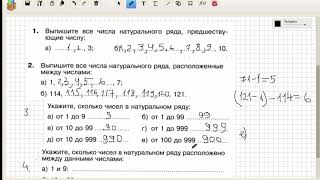 1. Выпишите все числа натурального ряда, предшествующие числу:
а) 1, 2, 3; б) 1, 2, 3, 4, 5, 6, 7, 8, 9, 10.
2. Выпишите все числа натурального ряда, расположенные между числами:
а) 1, 2, 3, 4, 5, 6, 7;
б) 114, 115, 116, 117, 118, 119, 120, 121.
3. Укажите, сколько чисел в натуральном ряду:
а) от 1 до 9 9 б) от 1 до 99 99
в) от 10 до 99 90 г) от 1 до 999 999
д) от 10 до 999 990 е) от 100 до 999 900
4. Укажите, сколько чисел в натуральном ряду расположено между данными числами:
а) 1 и 9:
7-1-1=5
(121-1)-114=6
е)